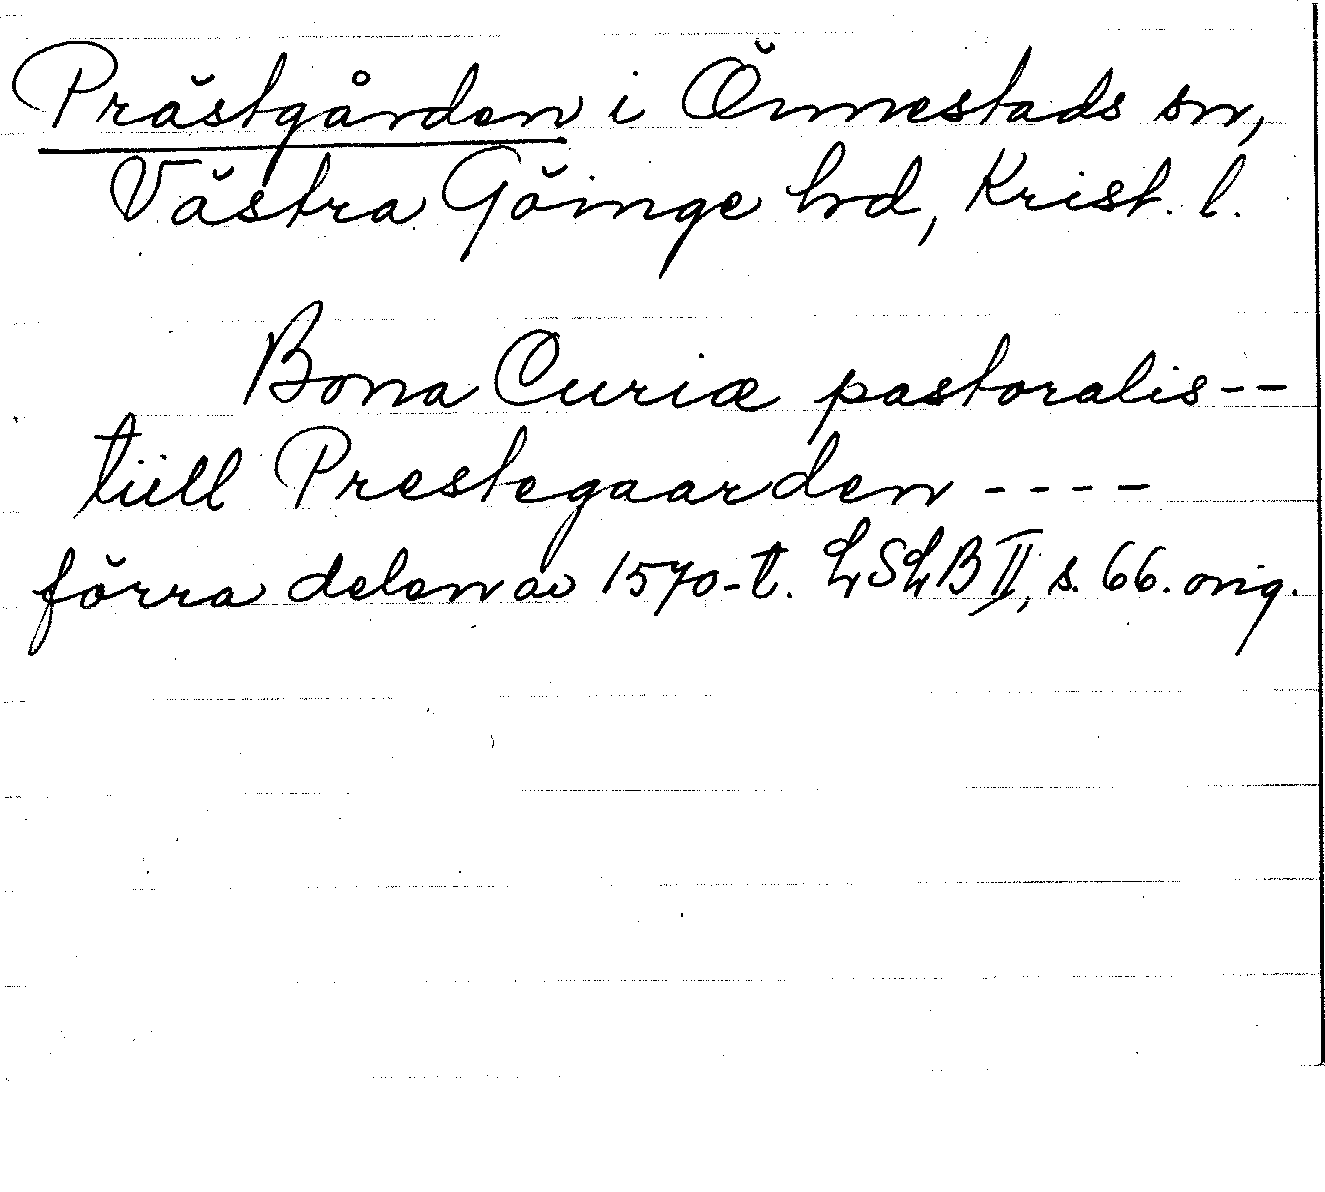 Prästgården i Önnestads sn,
Västra Göinge hrd, Krist. l.
Bona Curiæ pastoralis--
tiill Prestegaarden ----
förra delen av 1570-t. LSLB II, s. 66. orig.